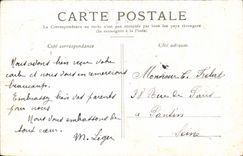 CARTE POSTALE
La Correspondance au recto n'est pas acceptée par tous les pays étrangers
(Se renseigner à la Poste)
Côté correspondance
Côté adresse
Nous avons bien reçu votre
carte et nous vous en remercions
beaucoup.
Embrassez bien vos parents
pour nous
Nous vous embrassons de
tout cœur.
M. Leger
Monsieur E.
98 Rue de Paris
à Pantin
Seine